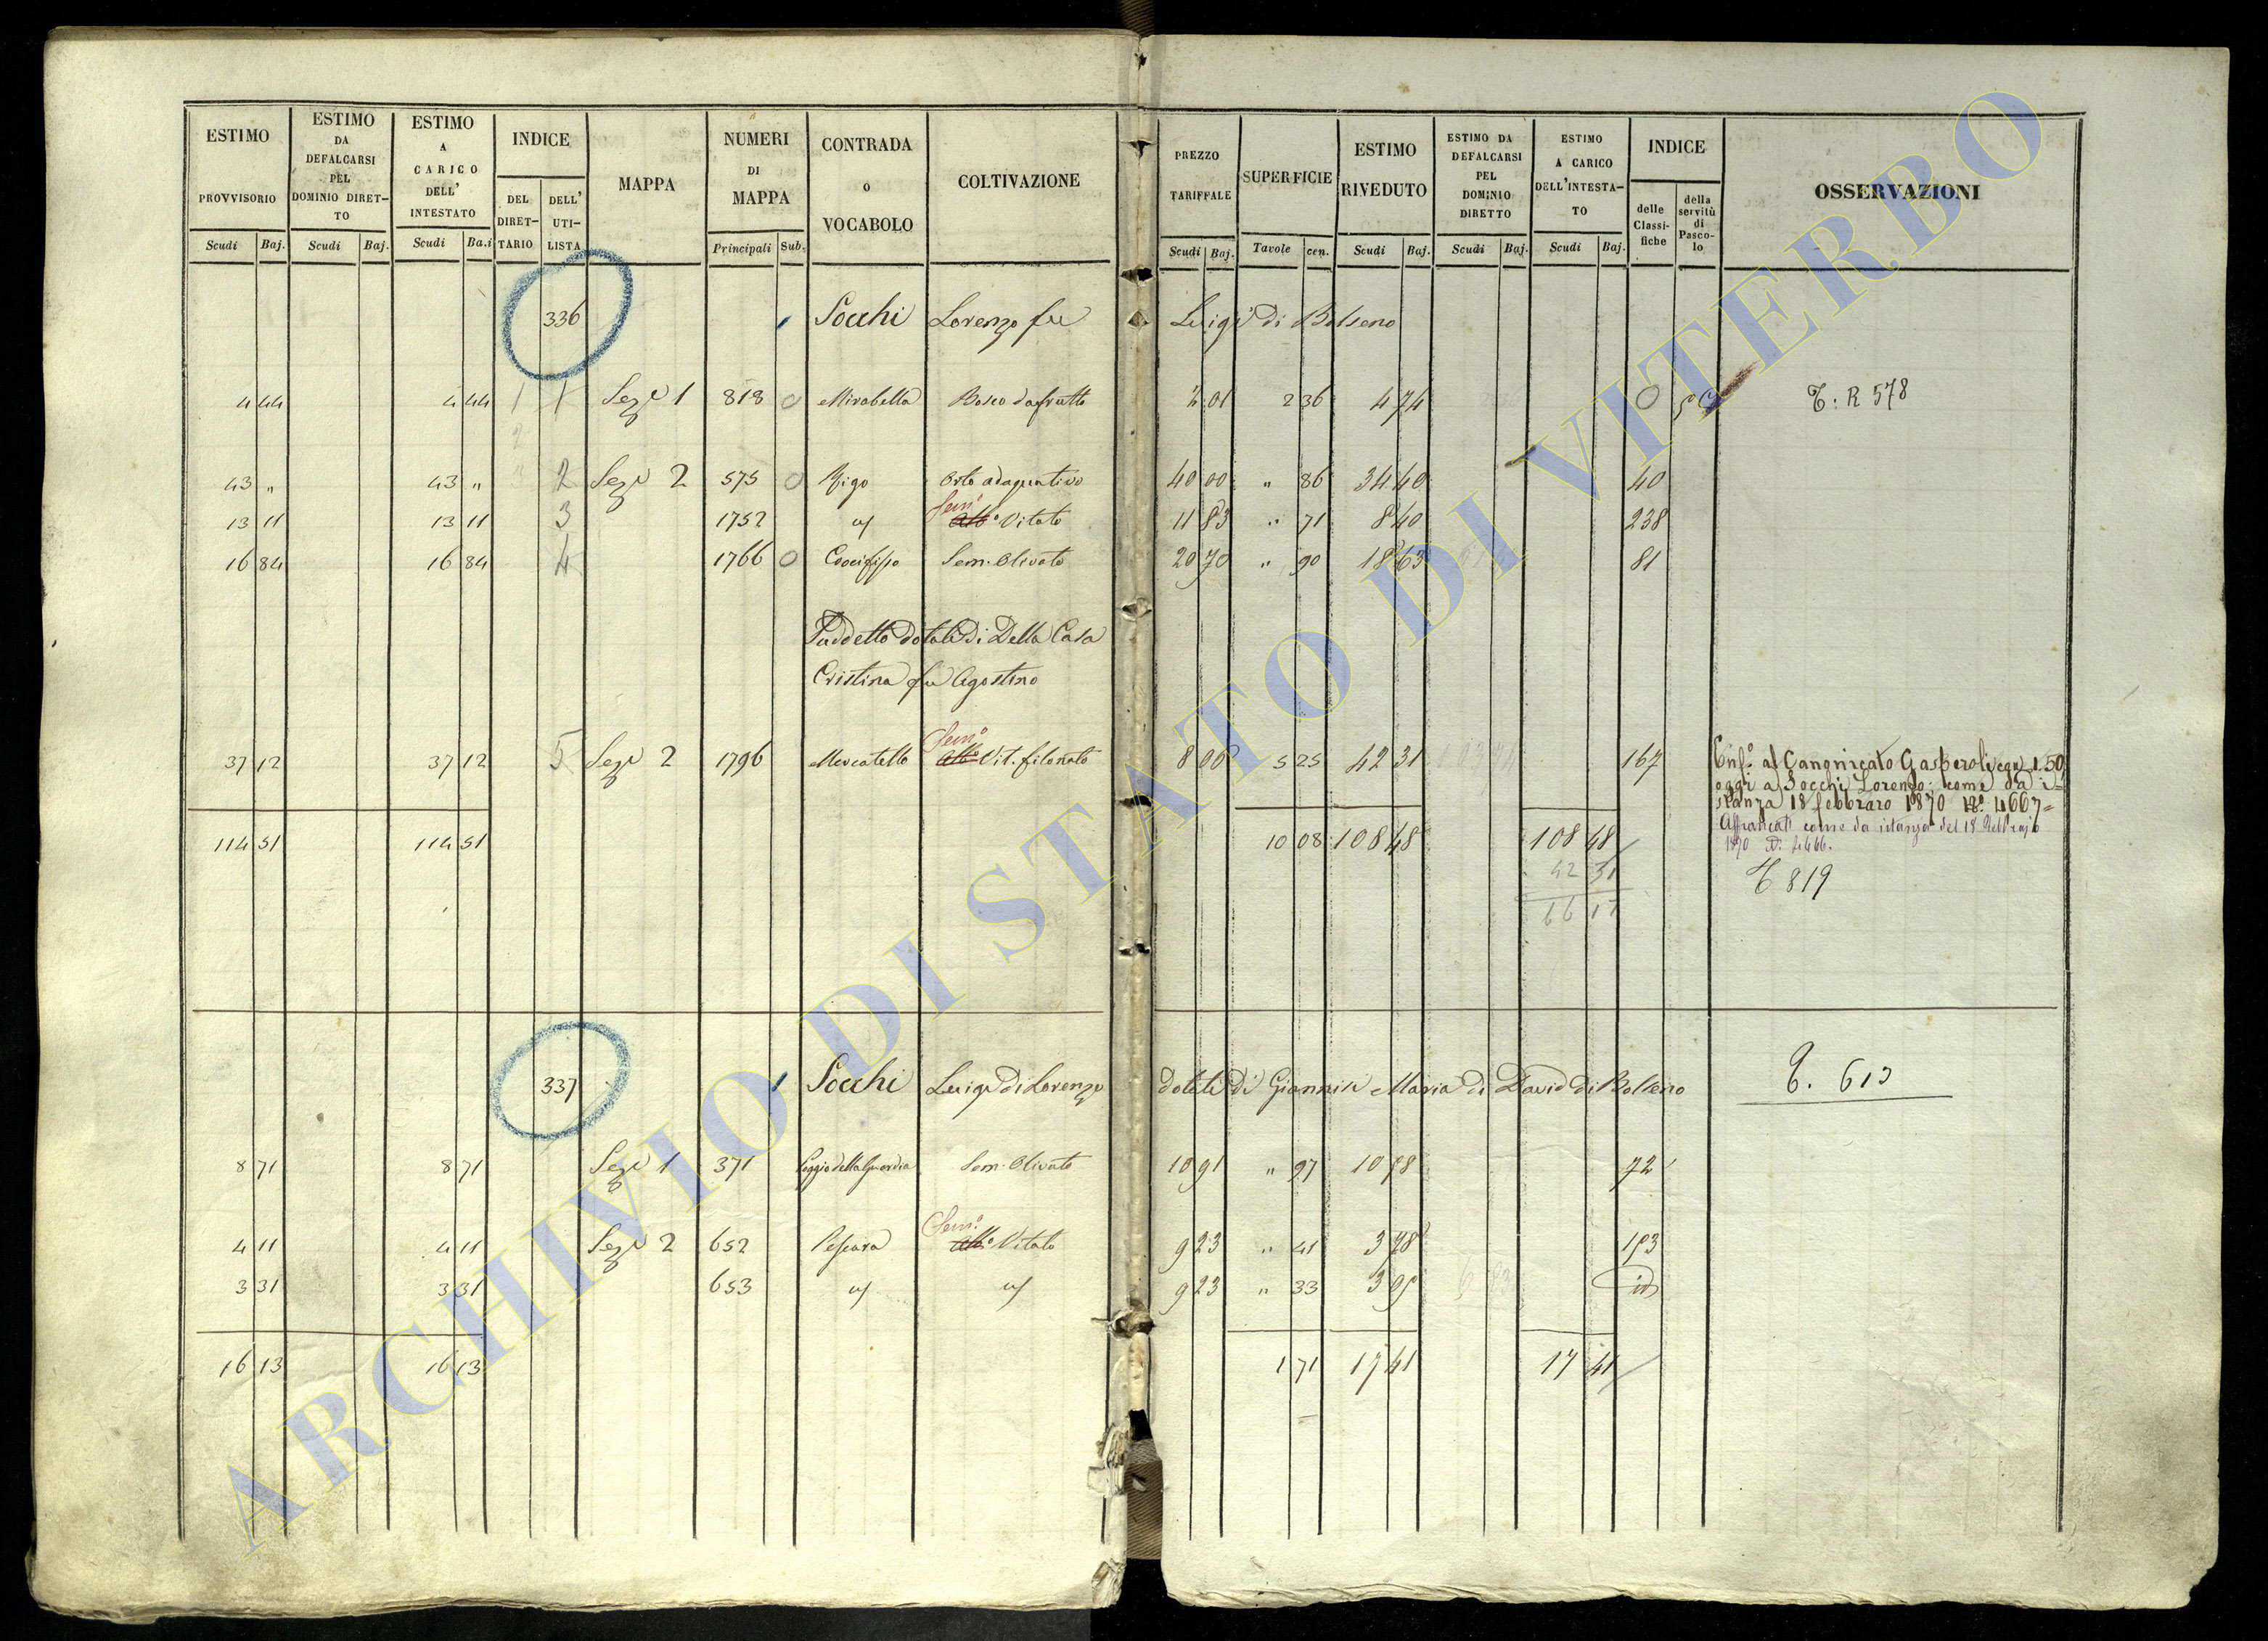 ESTIMO PROVVISORIO Scudi Baj.
ESTIMO DA DEFALCARSI PEL DOMINIO DIRETTO Scudi Baj.
ESTIMO A CARICO DELL' INTESTATO Scudi Ba.i
INDICE DEL DIRETTARIO DELL' UTILISTA
MAPPA
NUMERI DI MAPPA Principali Sub.
CONTRADA o VOCABOLO
COLTIVAZIONE
PREZZO TARIFFALE Scudi Baj.
SUPERFICIE Tavole cen.
ESTIMO RIVEDUTO Scudi Baj.
ESTIMO DA DEFALCARSI PEL DOMINIO DIRETTO Scudi Baj.
ESTIMO A CARICO DELL'INTESTATO Scudi Baj.
INDICE delle Classifiche della servitù di Pascolo
OSSERVAZIONI
336 Socchi Lorenzo fu Luigi di Bolseno
4 44 4 44 1 1 Seze 1 818 0 Mirabella Bosco da frutto 2 01 2 36 4 74 0 T: R 578
2
43 " 43 " 3 2 Seze 2 575 0 Rigo Orto adaquativo 40 00 " 86 34 40 40
13 11 13 11 3 1752 Sem.o Vitato 11 83 " 71 8 40 238
16 84 16 84 4 1766 0 Crocifisso Sem. Olivato 20 70 " 90 18 63 81
Suddetto dotali di Della Casa
Cristina fu Agostino
37 12 37 12 5 Seze 2 1796 Mercatello Sem.o Vit. filonato 8 06 5 25 42 31 167
Enf.o al Canonicato Gasperoli 1.50
oggi a Socchi Lorenzo: come da i=
stanza 18 febbraro 1870 N.o 4667=
Affrancati come da istanza del 18
1870 N. 4466.
114 51 114 51 10 08 108 48 108 48
42 31
66 17
T 819
337 Socchi Luigi di Lorenzo dotali di Giannisi Maria di David di Bolseno T. 613
8 71 8 71 Seze 1 371 Poggio della Guardia Sem. Olivato 10 91 " 97 10 58 72
4 11 4 11 Seze 2 652 Pescara Sem.o Vitato 9 23 " 41 3 78 153
3 31 3 31 653 9 23 " 33 3 05 id
16 13 16 13 1 71 17 41 17 41
ARCHIVIO DI STATO DI VITERBO